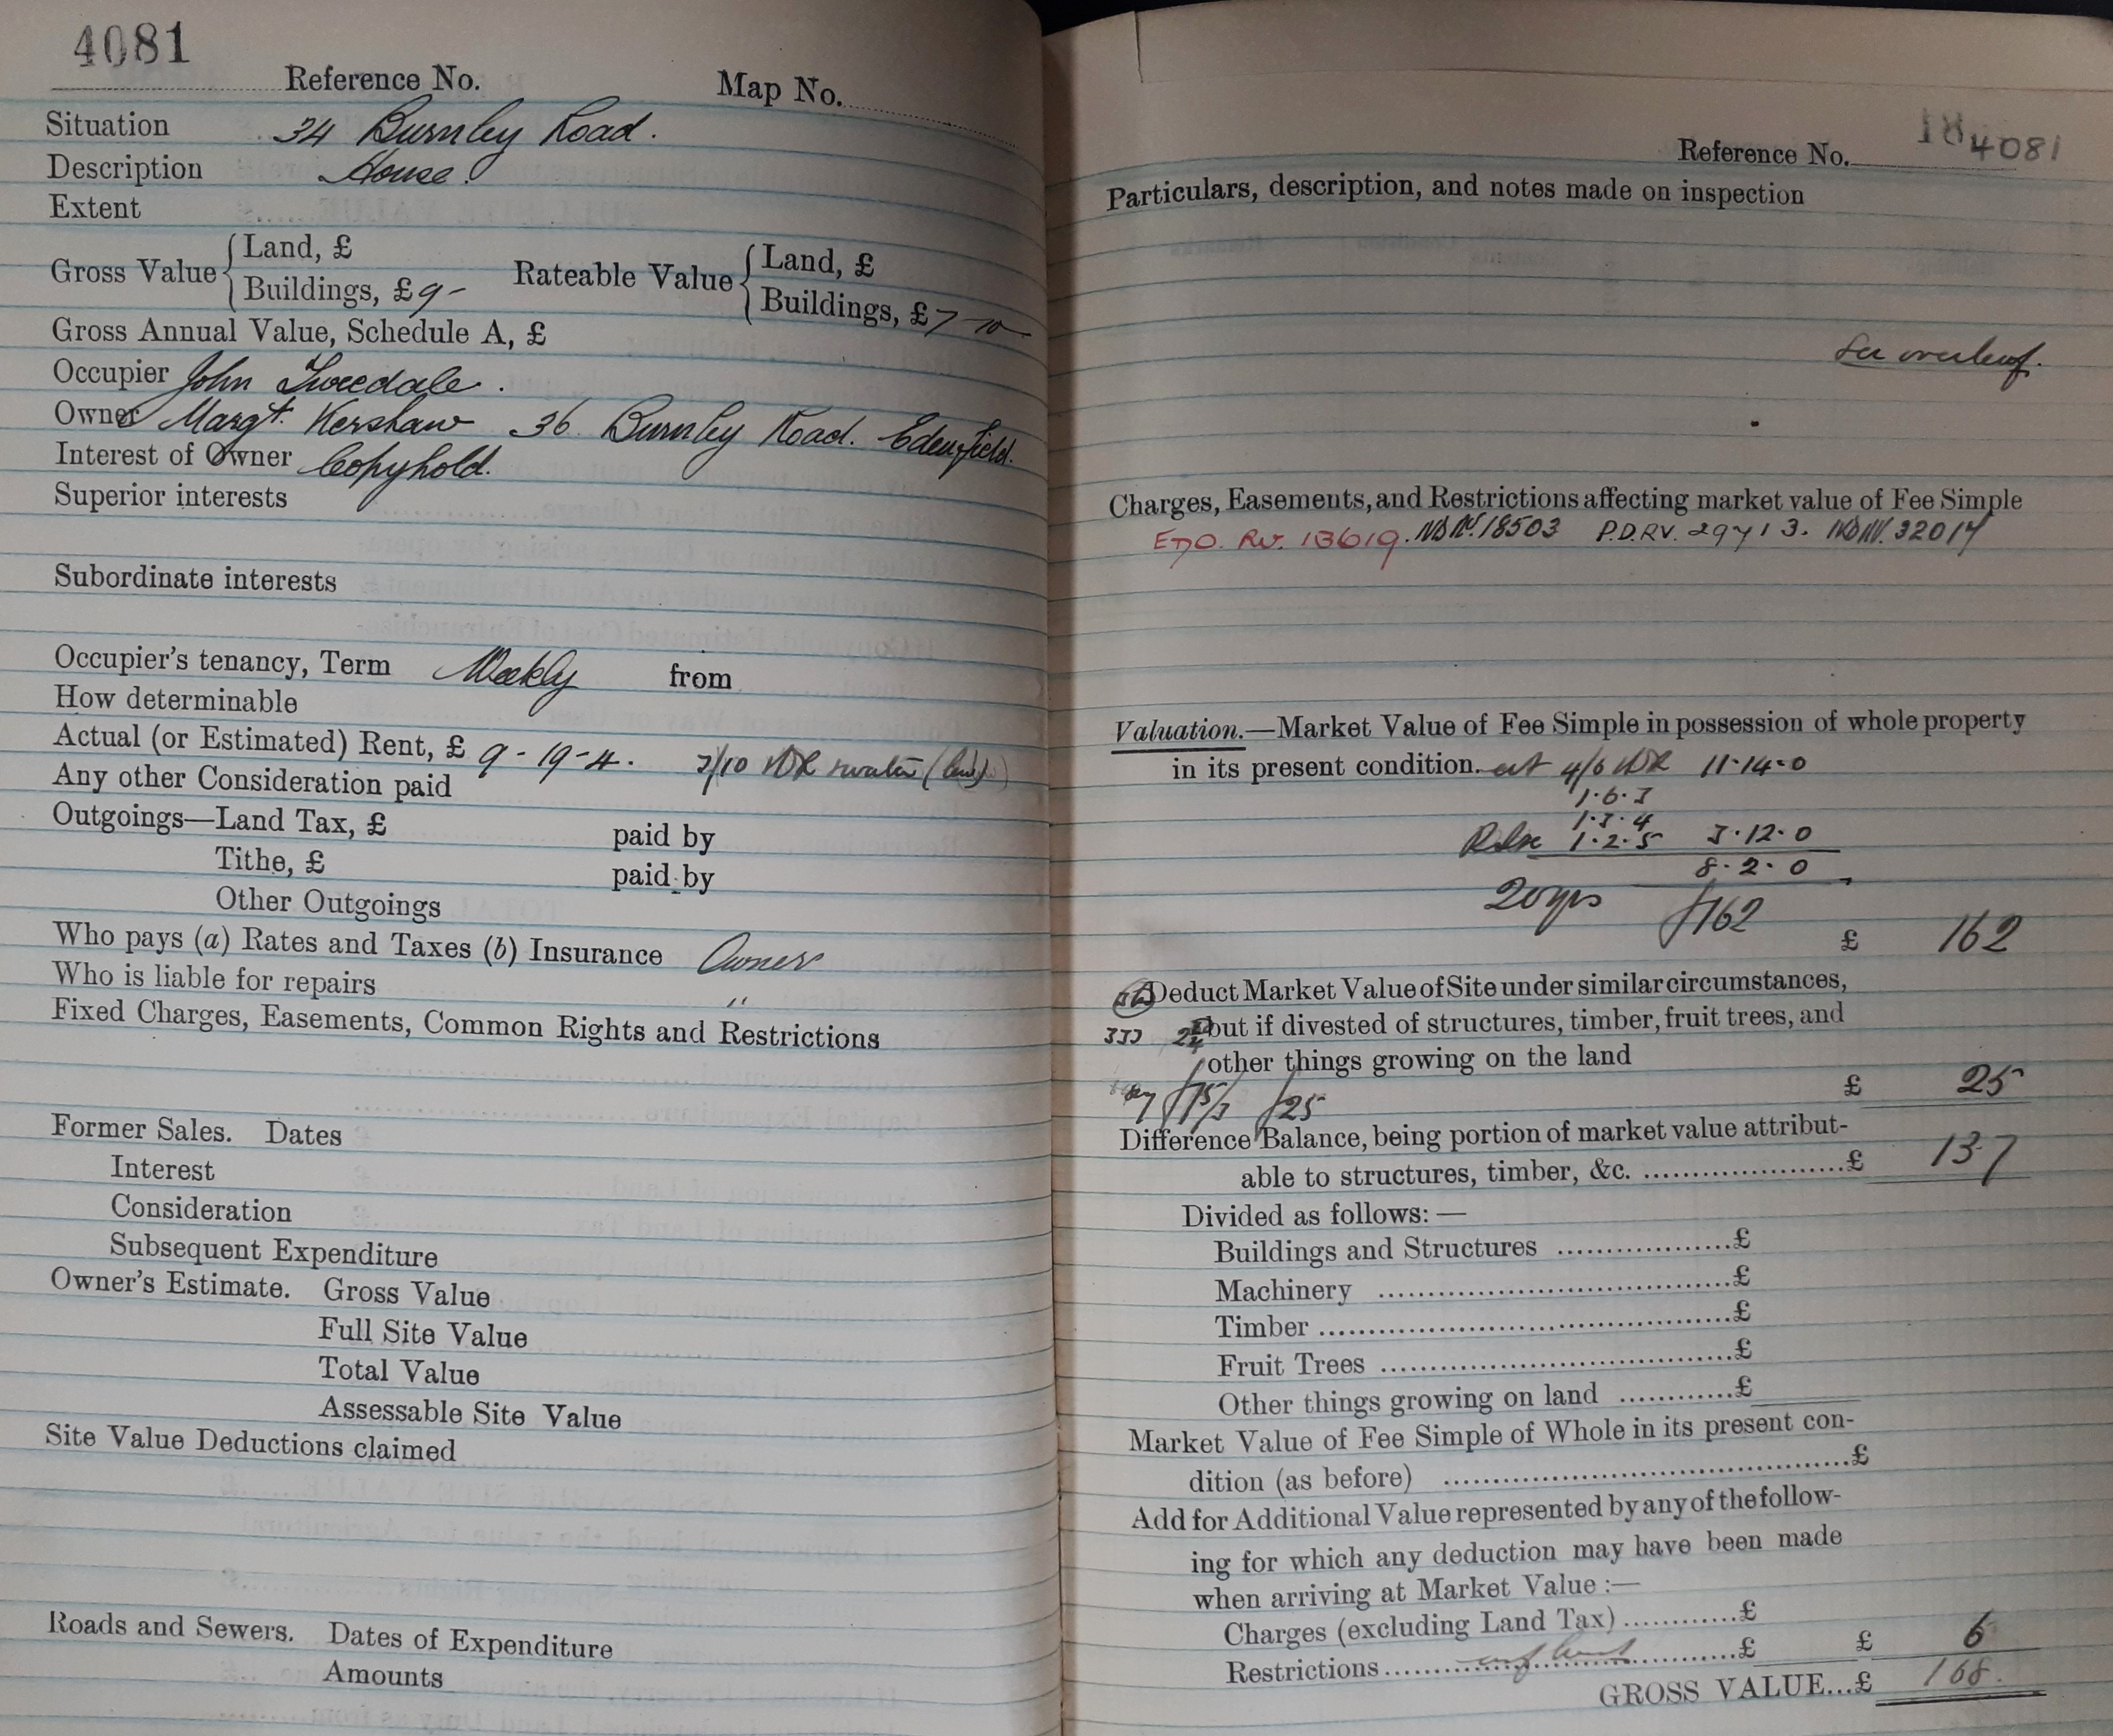 4081
Reference No. Map No.
Situation 34 Burnley Road.
Description House.
Extent
Gross Value { Land, £
Buildings, £9- Rateable Value { Land, £
Buildings, £7-10-
Gross Annual Value, Schedule A, £
Occupier John Tweedale.
Owner Margt. Kershaw 36 Burnley Road. Edenfield.
Interest of Owner Copyhold.
Superior interests
Subordinate interests
Occupier's tenancy, Term Weekly from
How determinable
Actual (or Estimated) Rent, £ 9-19-4. 3/10
Any other Consideration paid
Outgoings—Land Tax, £ paid by
Tithe, £ paid by
Other Outgoings
Who pays (a) Rates and Taxes (b) Insurance Owner
Who is liable for repairs "
Fixed Charges, Easements, Common Rights and Restrictions
Former Sales. Dates
Interest
Consideration
Subsequent Expenditure
Owner's Estimate. Gross Value
Full Site Value
Total Value
Assessable Site Value
Site Value Deductions claimed
Roads and Sewers. Dates of Expenditure
Amounts
Reference No. 4081
Particulars, description, and notes made on inspection
See overleaf.
Charges, Easements, and Restrictions affecting market value of Fee Simple
18503 P.D.RV. 29713. 32017
Valuation.—Market Value of Fee Simple in possession of whole property
in its present condition. at 4/6 11-14-0
1.6.3
1.3.4
1.2.5 3.12.0
8.2.0
20 yrs £162
£ 162
Deduct Market Value of Site under similar circumstances,
but if divested of structures, timber, fruit trees, and
other things growing on the land
£25
£ 25
Difference Balance, being portion of market value attribut-
able to structures, timber, &c. £ 137
Divided as follows:—
Buildings and Structures £
Machinery £
Timber £
Fruit Trees £
Other things growing on land £
Market Value of Fee Simple of Whole in its present con-
dition (as before) £
Add for Additional Value represented by any of the follow-
ing for which any deduction may have been made
when arriving at Market Value:—
Charges (excluding Land Tax) £
Restrictions £ £ 6
GROSS VALUE...£ 168.